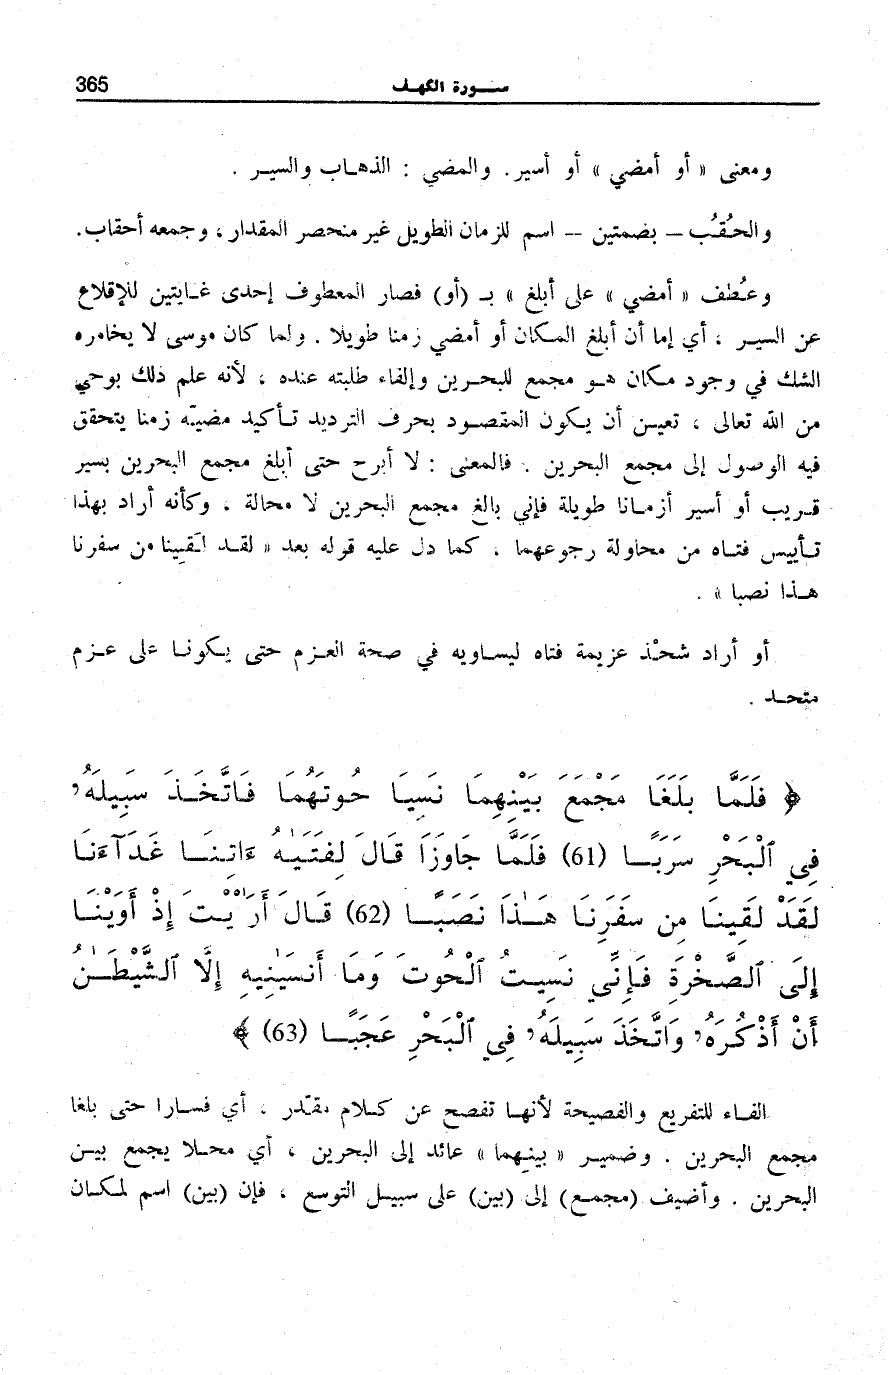 سورة الكهف 365
ومعنى « أو أمضي » أو أسير. والمضي : الذهاب والسير .
والحُقُب – بضمتين – اسم للزمان الطويل غير منحصر المقدار ، وجمعه أحقاب.
وعُطف « أمضي » على أبلغ » بـ (أو) فصار المعطوف إحدى غايتين للإقلاع
عن السير ، أي إما أن أبلغ المكان أو أمضي زمنا طويلا . ولما كان موسى لا يخامره
الشك في وجود مكان هو مجمع للبحرين وإلفاء طلبته عنده ، لأنه علم ذلك بوحي
من الله تعالى ، تعين أن يكون المقصود بحرف الترديد تأكيد مضيّه زمنا يتحقق
فيه الوصول إلى مجمع البحرين . فالمعنى : لا أبرح حتى أبلغ مجمع البحرين بسير
قريب أو أسير أزمانا طويلة فإني بالغ مجمع البحرين لا محالة . وكأنه أراد بهذا
تأييس فتاه من محاولة رجوعهما ، كما دل عليه قوله بعد « لقد لقينا من سفرنا
هذا نصبا » .
أو أراد شحْذ عزيمة فتاه ليساويه في صحة العزم حتى يكونا على عزم
متحد .
﴿ فَلَمَّا بَلَغَا مَجْمَعَ بَيْنِهِمَا نَسِيَا حُوتَهُمَا فَاتَّخَذَ سَبِيلَهُۥ
فِي ٱلْبَحْرِ سَرَبًا (61) فَلَمَّا جَاوَزَا قَالَ لِفَتَىٰهُ ءَاتِنَا غَدَآءَنَا
لَقَدْ لَقِينَا مِن سَفَرِنَا هَٰذَا نَصَبًا (62) قَالَ أَرَٰيْتَ إِذْ أَوَيْنَا
إِلَى ٱلصَّخْرَةِ فَإِنِّي نَسِيتُ ٱلْحُوتَ وَمَا أَنسَىٰنِيهِ إِلَّا ٱلشَّيْطَٰنُ
أَنْ أَذْكُرَهُۥ وَاتَّخَذَ سَبِيلَهُۥ فِي ٱلْبَحْرِ عَجَبًا (63) ﴾
الفاء للتفريع والفصيحة لأنها تفصح عن كلام مقدّر ، أي فسارا حتى بلغا
مجمع البحرين . وضمير « بينهما » عائد إلى البحرين ، أي محلا يجمع بين
البحرين . وأضيف (مجمع) إلى (بين) على سبيل التوسع ، فإن (بين) اسم لمكان